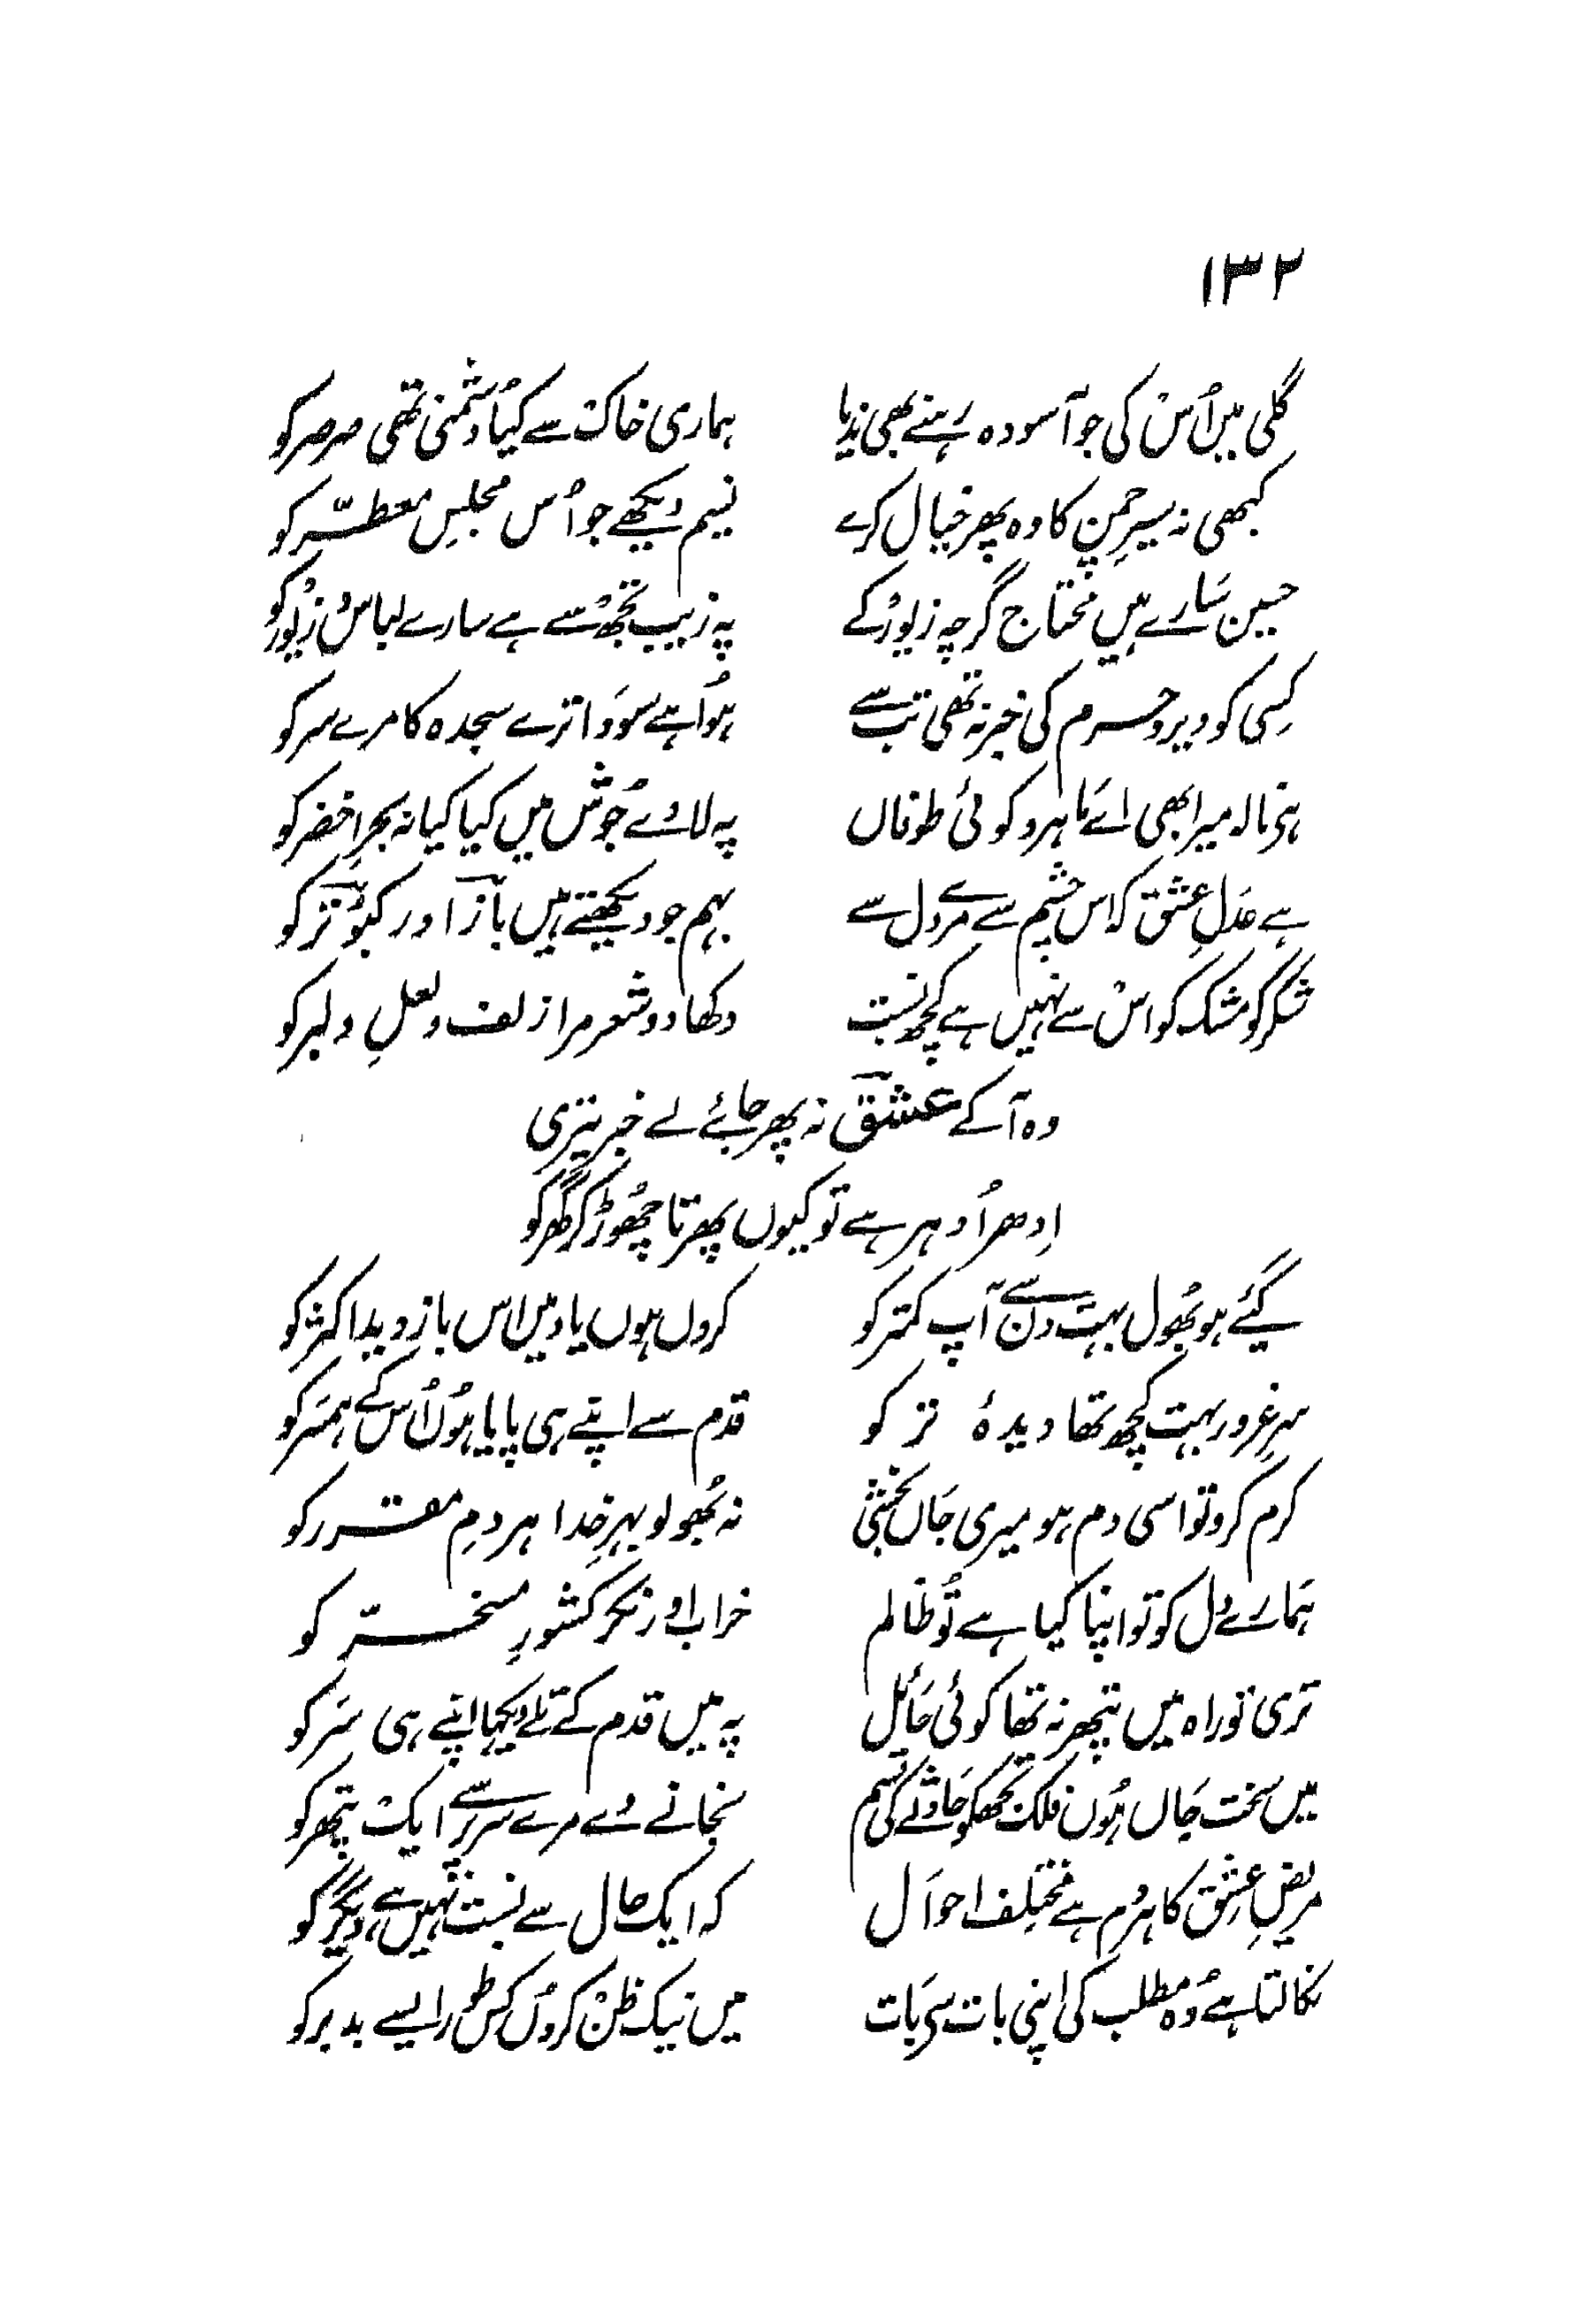 ۱۳۲
گلی میں اُس کی جو آسودہ رہنے بھی ندیا ہماری خاک سے کیا دُشمنی تھی صرصر کو
کبھی نہ سیرِ چمن کا وہ پھر خیال کرے نسیم دیکھے جو اُس مجلسِ معطّر کو
حسین سَارے ہیں محتاج گرچہ زیور کے پہ زیب تجھ سے ہے سارے لباس و زیور کو
کِسی کو دیر و حرم کی خبر نہ تھی تب سے ہُوا ہے سَودا ترے سجدہ کا مرے سر کو
نالہ میرا بھی اے مَاہرو کوئی طوفاں پہ لاوے جُوش میں کیا کیا نہ بحرِ اخضر کو
ہے عَدلِ عشق کہ اس چشم سے مرے دل سے بہم جو دیکھتے ہیں باز اور کبوتر کو
شکر کو مشک کو اس سے نہیں ہے کچھ نسبت دکھا دو شعر مرا زلف و لعلِ دلبر کو
وہ آ کے عشق نہ پھر جائے لے خبر تیری
اِدھر اُدہر ہے تو کیوں پھرتا چھوڑ کر گھر کو
گیئے ہو بھُول بہت دن سے آپ کمتر کو کروں ہوں یاد میں اس باز دید اکثر کو
سرِ غرور بہت کچھ تھا دیدۂ تر کو قدم سے اپنے ہی پایا ہُوں اُس کے ہمسَر کو
کرم کرو تو اسی دم ہو میری جَاں بخشی نہ بھُولو بہرِ خدا ہر دمِ مقرر کو
ہَمارے دل کو تو اپنا کیا ہے تُو ظالم خراب اور نکر کشورِ مسخّر کو
تری تو راہ میں پتھر نہ تھا کوئی حَائل پہ میں قدم کے تلے دیکہا اپنے ہی سَر کو
میں سخت جَاں ہُوں فلک تجھکو حَادثے کی قسم نجانے دے مرے سر پر سے ایک پتھر کو
مریضِ عِشق کا ہر دم ہے مختلف احوَال کہ ایک حال سے نسبت نہیں ہے دیگر کو
نکالتا ہے وُہ مطلب کی اپنی بات سی بَات میں نیک ظن کروں کس طور ایسے بد بر کو